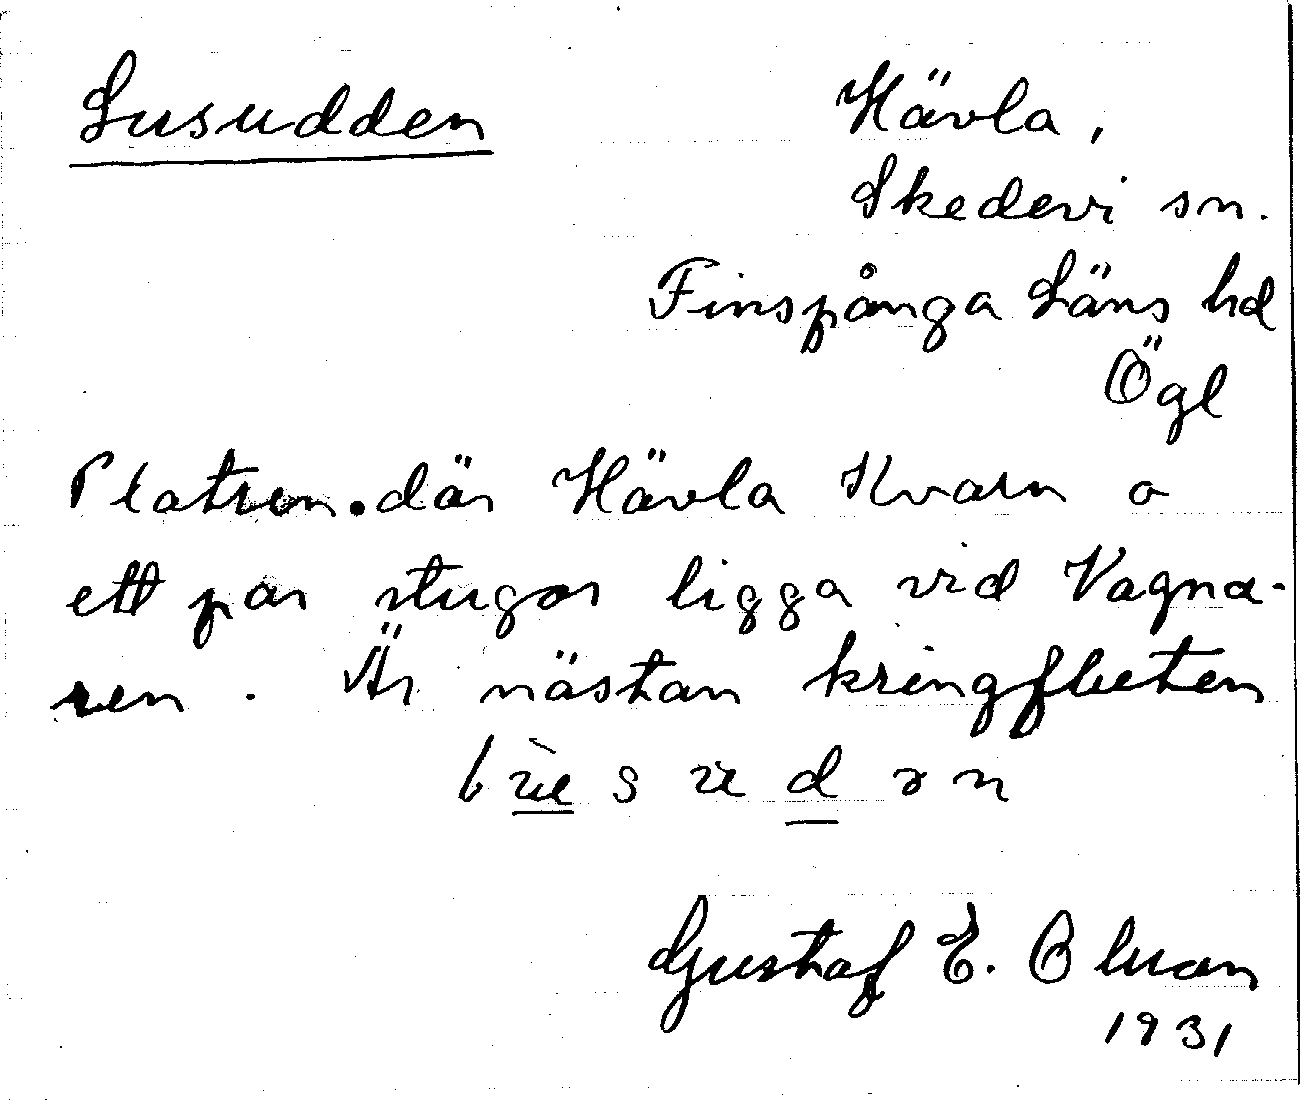 Lusudden
Hävla,
Skedevi sn.
Finspånga Läns hd
Ögl
Platsen där Hävla Kvarn o
ett par stugor ligga vid Vagna-
ren. Är nästan kringfluten
Gustaf E. Olsson
1931